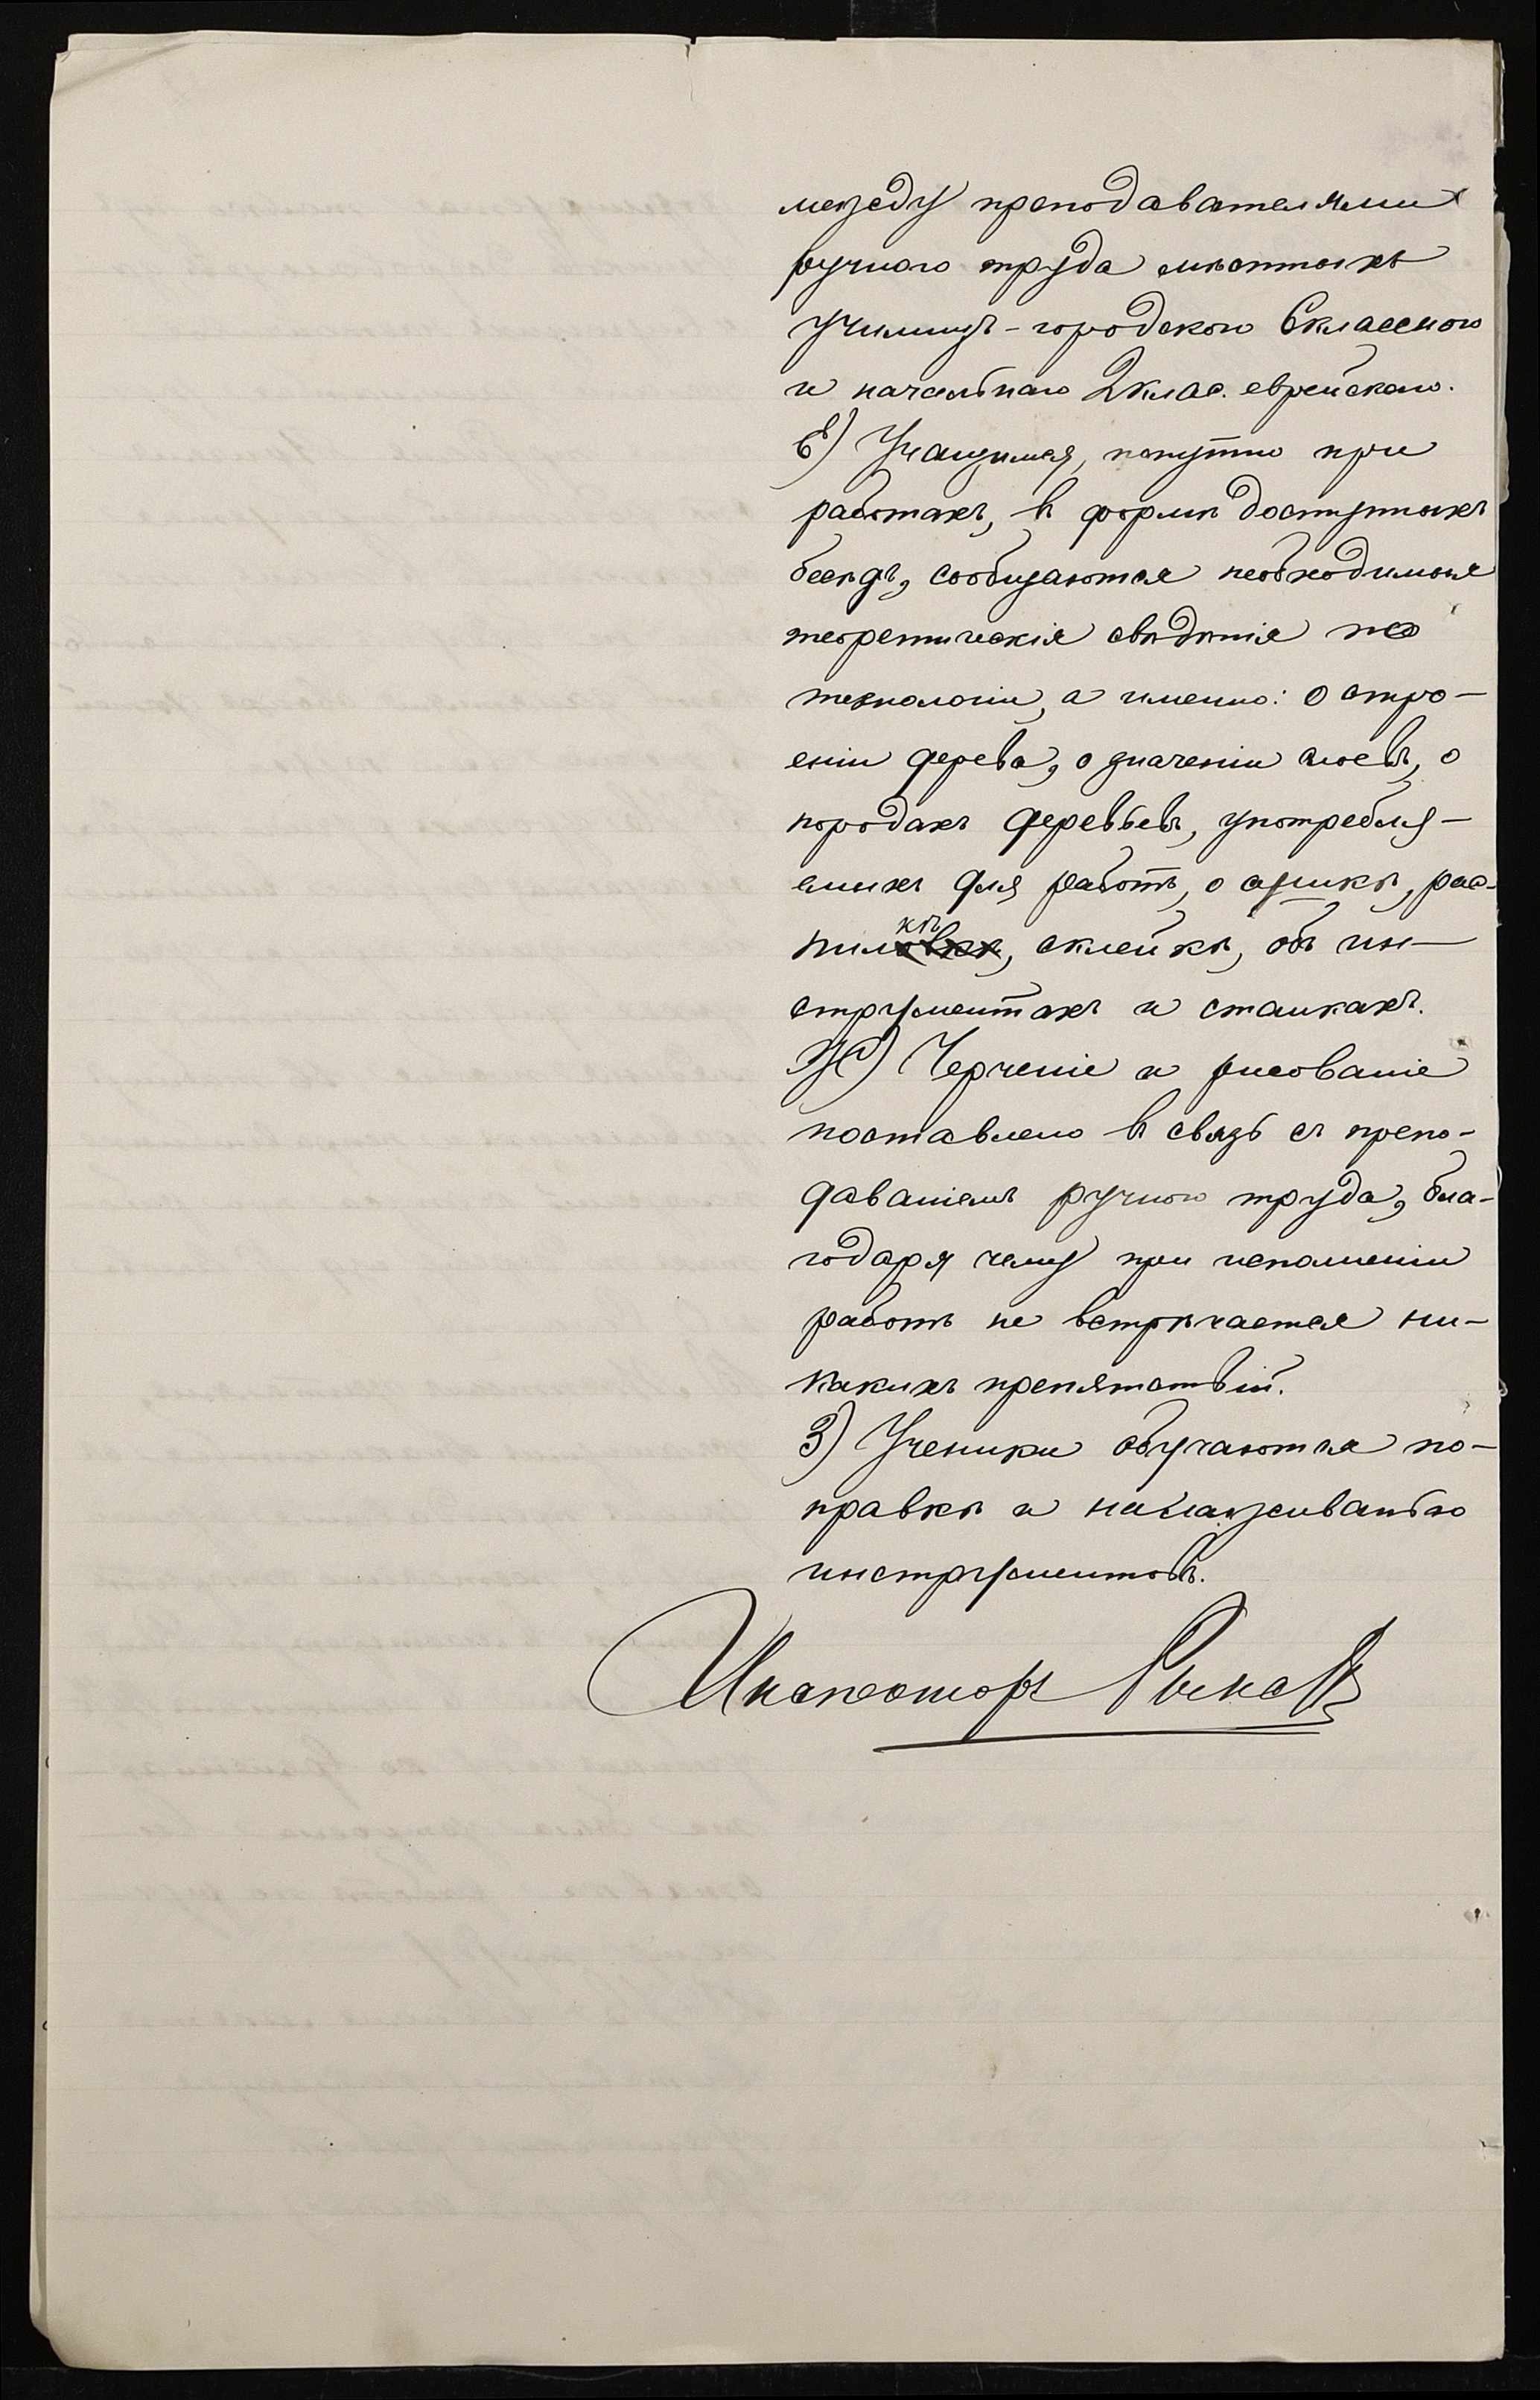 между преподавателями
ручного труда мѣстныхъ
училищъ - городского 6классного
и начальнаго 2клас. еврейскаго.
Е) Учащимся, попутно при
работахъ, въ формѣ доступныхъ
бесѣдъ, сообщаются необходимыя
теоретическія свѣдѣнія по
технологіи, а именно: о стро-
еніи дерева, о значеніи слоевъ, о
породахъ деревьевъ, употребля-
емыхъ для работъ, о сушкѣ, рас-
пилкѣ, склейкѣ, объ ин-
струментахъ и станкахъ.
Ж) Черченіе и рисованіе
поставлено въ связь съ препо-
даваніемъ ручного труда, бла-
годаря чему при исполненіи
работъ не встрѣчается ни-
какихъ препятствій.
З) Ученики обучаются по-
правкѣ и налаживанью
инструментовъ.
Инспекторъ